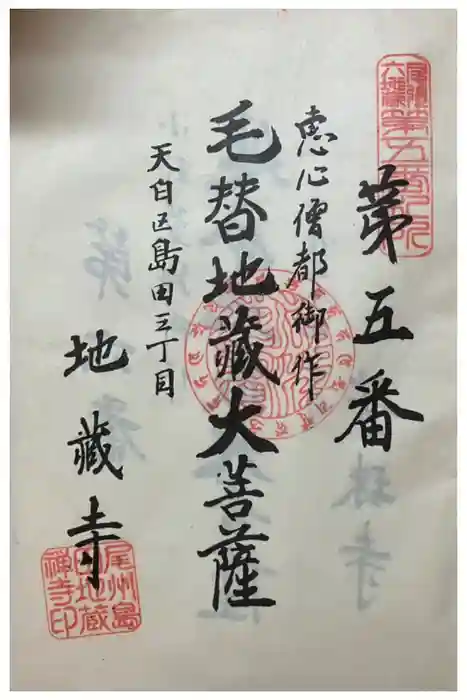 第五番
恵心僧都御作
毛替地蔵大菩薩
天白区島田三丁目
地蔵寺
尾州島
田地蔵
禅寺印